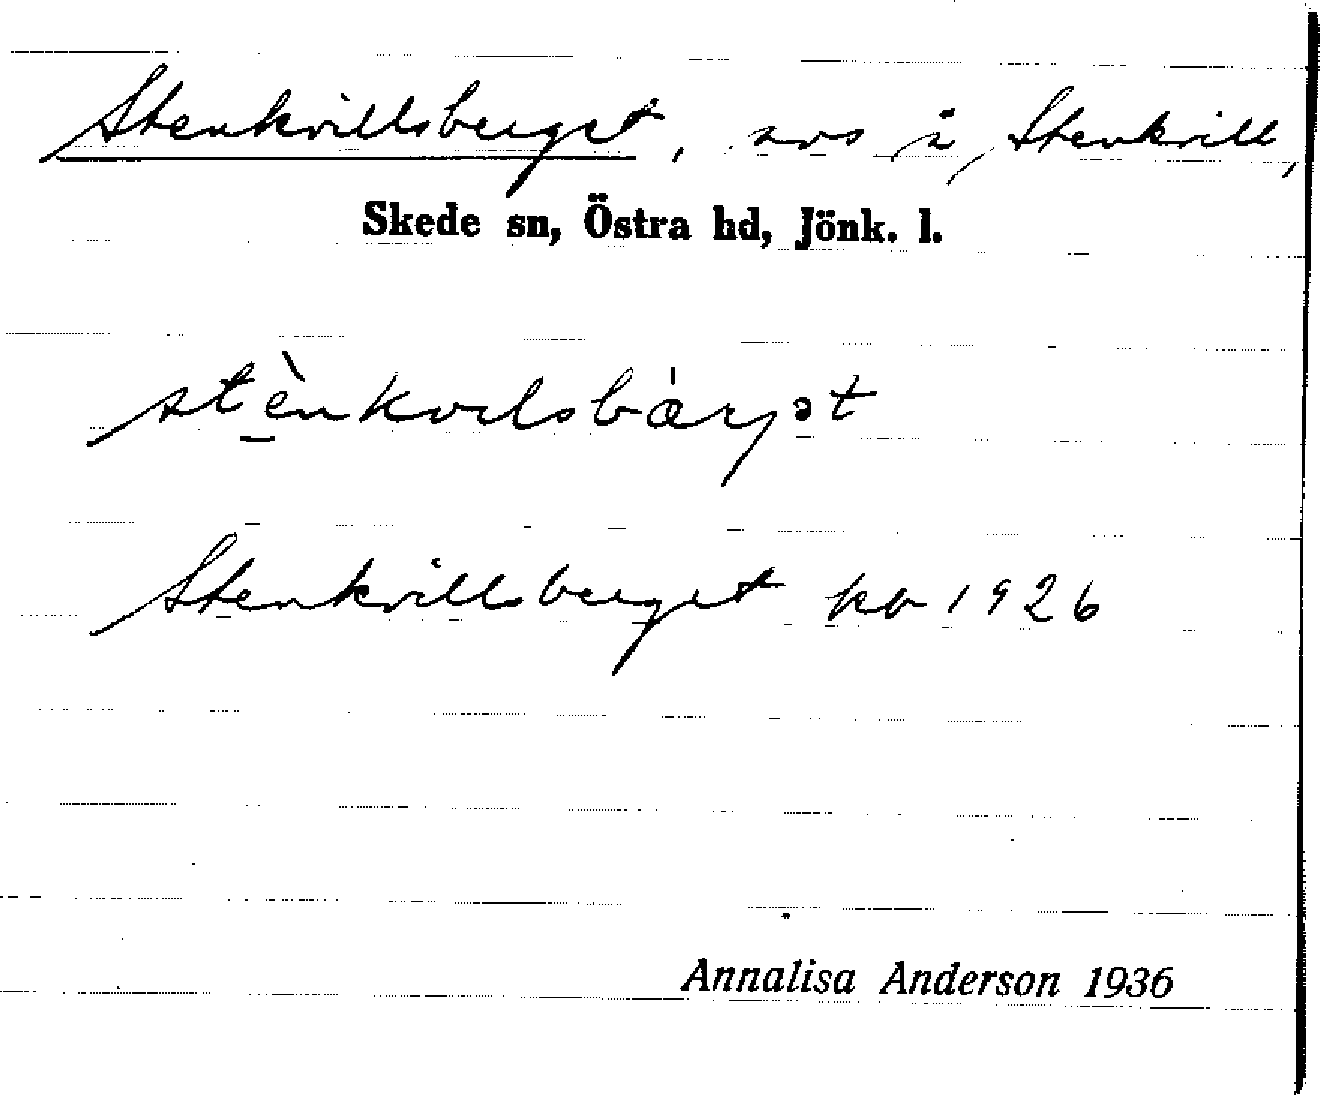 Stenkvillsberget, avs i Stenkvill,
Skede sn, Östra hd, Jönk. l.
stènkvılsbár̡ət
Stenkvillsberget kb 1926
Annalisa Anderson 1936